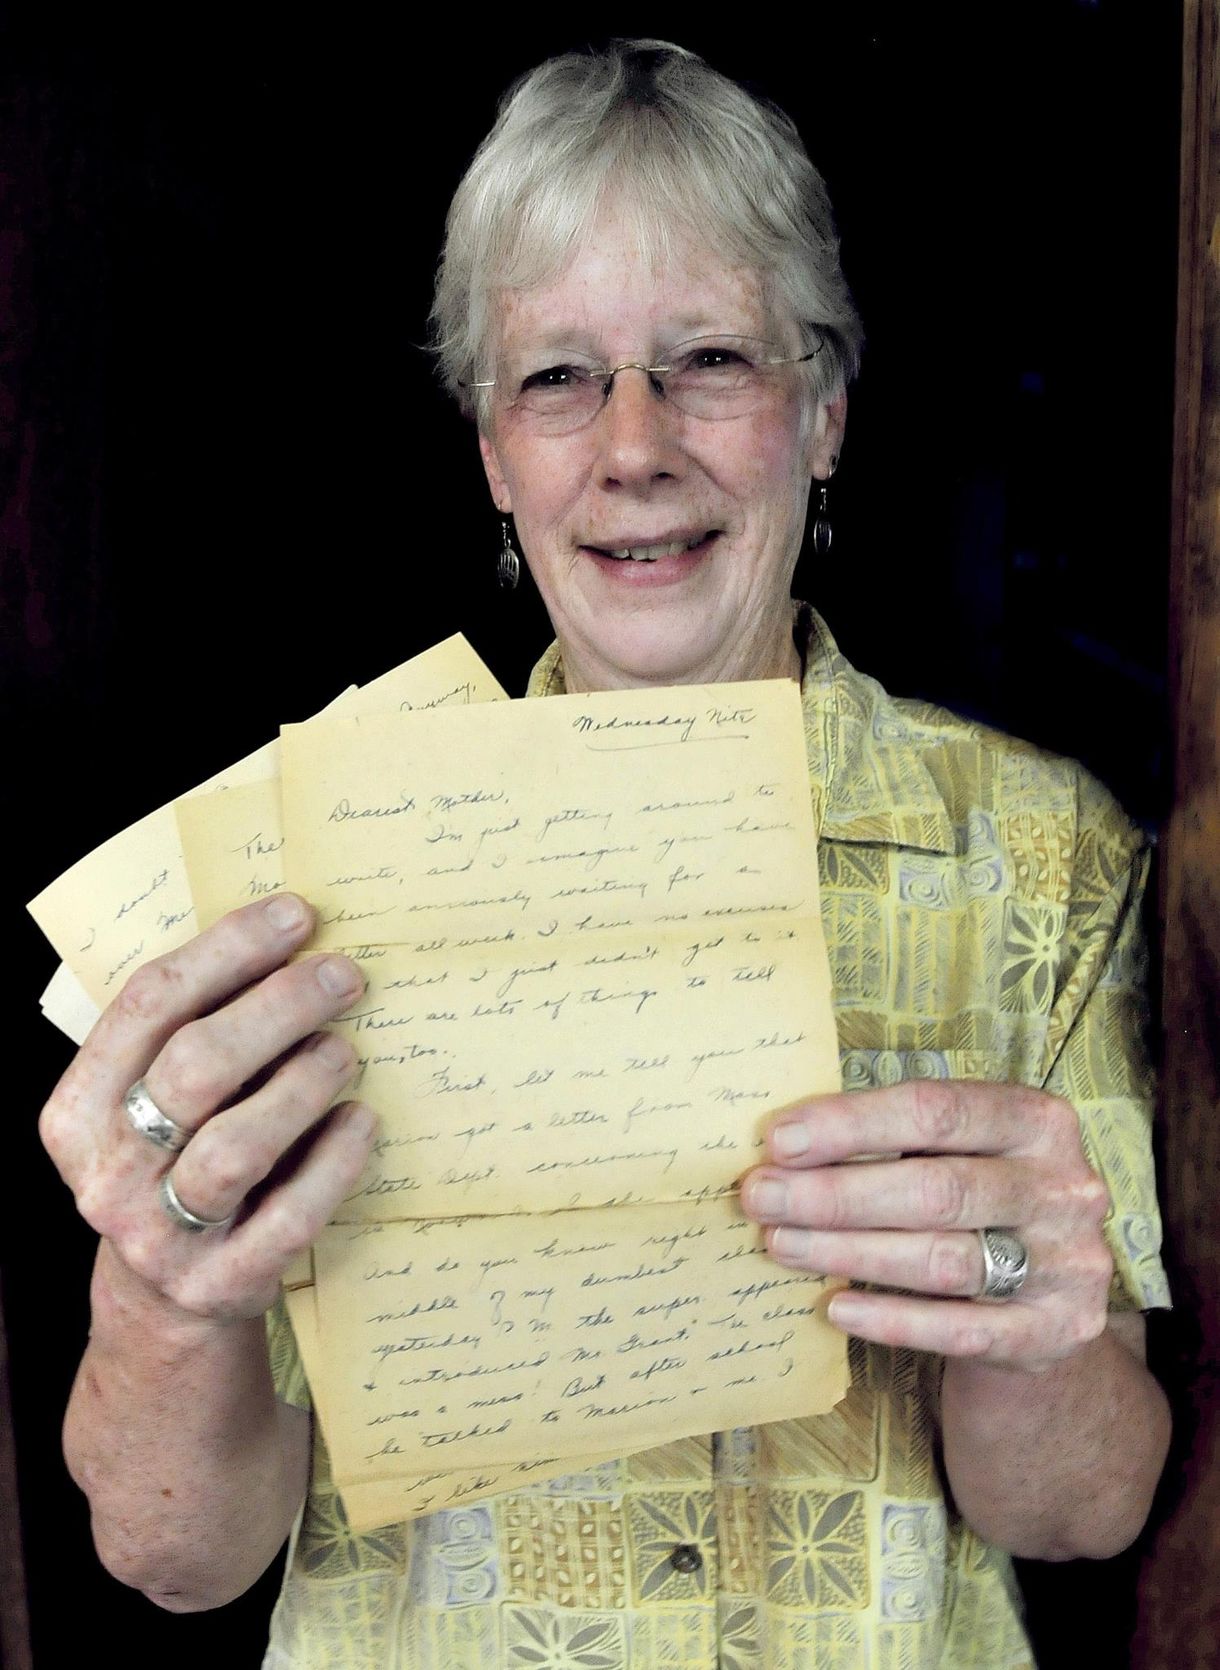 Anyway,
The
Mo
I doubt
over Me
Wednesday Nite
Dearest Mother,
I'm just getting around to
write, and I imagine you have
been anxiously waiting for a
letter all week. I have no excuses
that I just didn't get to it
There are lots of things to tell
you, too.
First, let me tell you that
Marion got a letter from Mass
State Dept. concerning the
in
And do you know right in
middle of my dumbest class
yesterday P M the super. appeared
& introduced Mr. Grant, The class
was a mess! But after school
he talked to Marion & me I
I like him